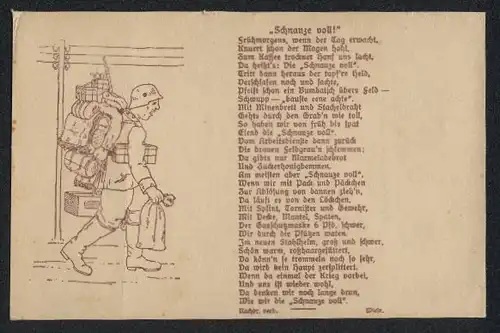 „Schnauze voll!"
Frühmorgens, wenn der Tag erwacht,
Knurrt schon der Magen hohl,
Zum Kaffee trocknet Hans uns lacht,
Da heißt's: Die „Schnauze voll".
Tritt dann heraus der tapf're Held,
Verschlafen noch und sachte,
Pfeift schon ein Bumbatsch übers Feld —
Schwupp — „bauste eene achte".
Mit Minenbrett und Stacheldraht
Gehts durch den Grab'n wie toll,
So haben wir von früh bis spat
Elend die „Schnauze voll".
Vom Arbeitsdienste dann zurück
Die braven Feldgrau'n schlemmen;
Da gibts nur Marmeladebrot
Und Zuckerhonigbemmen.
Am meisten aber „Schnauze voll".
Wenn wir mit Pack und Päckchen
Zur Ablösung von dannen zieh'n,
Da läuft es von den Löckchen.
Mit Splint, Tornister und Gewehr,
Mit Decke, Mantel, Spaten,
Der Gasschutzmaske 6 Pfd. schwer,
Wir durch die Pfützen waten.
Im neuen Stahlhelm, groß und schwer,
Schön warm, roßhaargefüttert,
Da könn'n se trommeln noch so sehr,
Da wird kein Haupt zersplittert.
Wenn da einmal der Krieg vorbei,
Und uns ist wieder wohl,
Da denken wir noch lange dran,
Wie wir die „Schnauze voll".
Nachdr. verb.